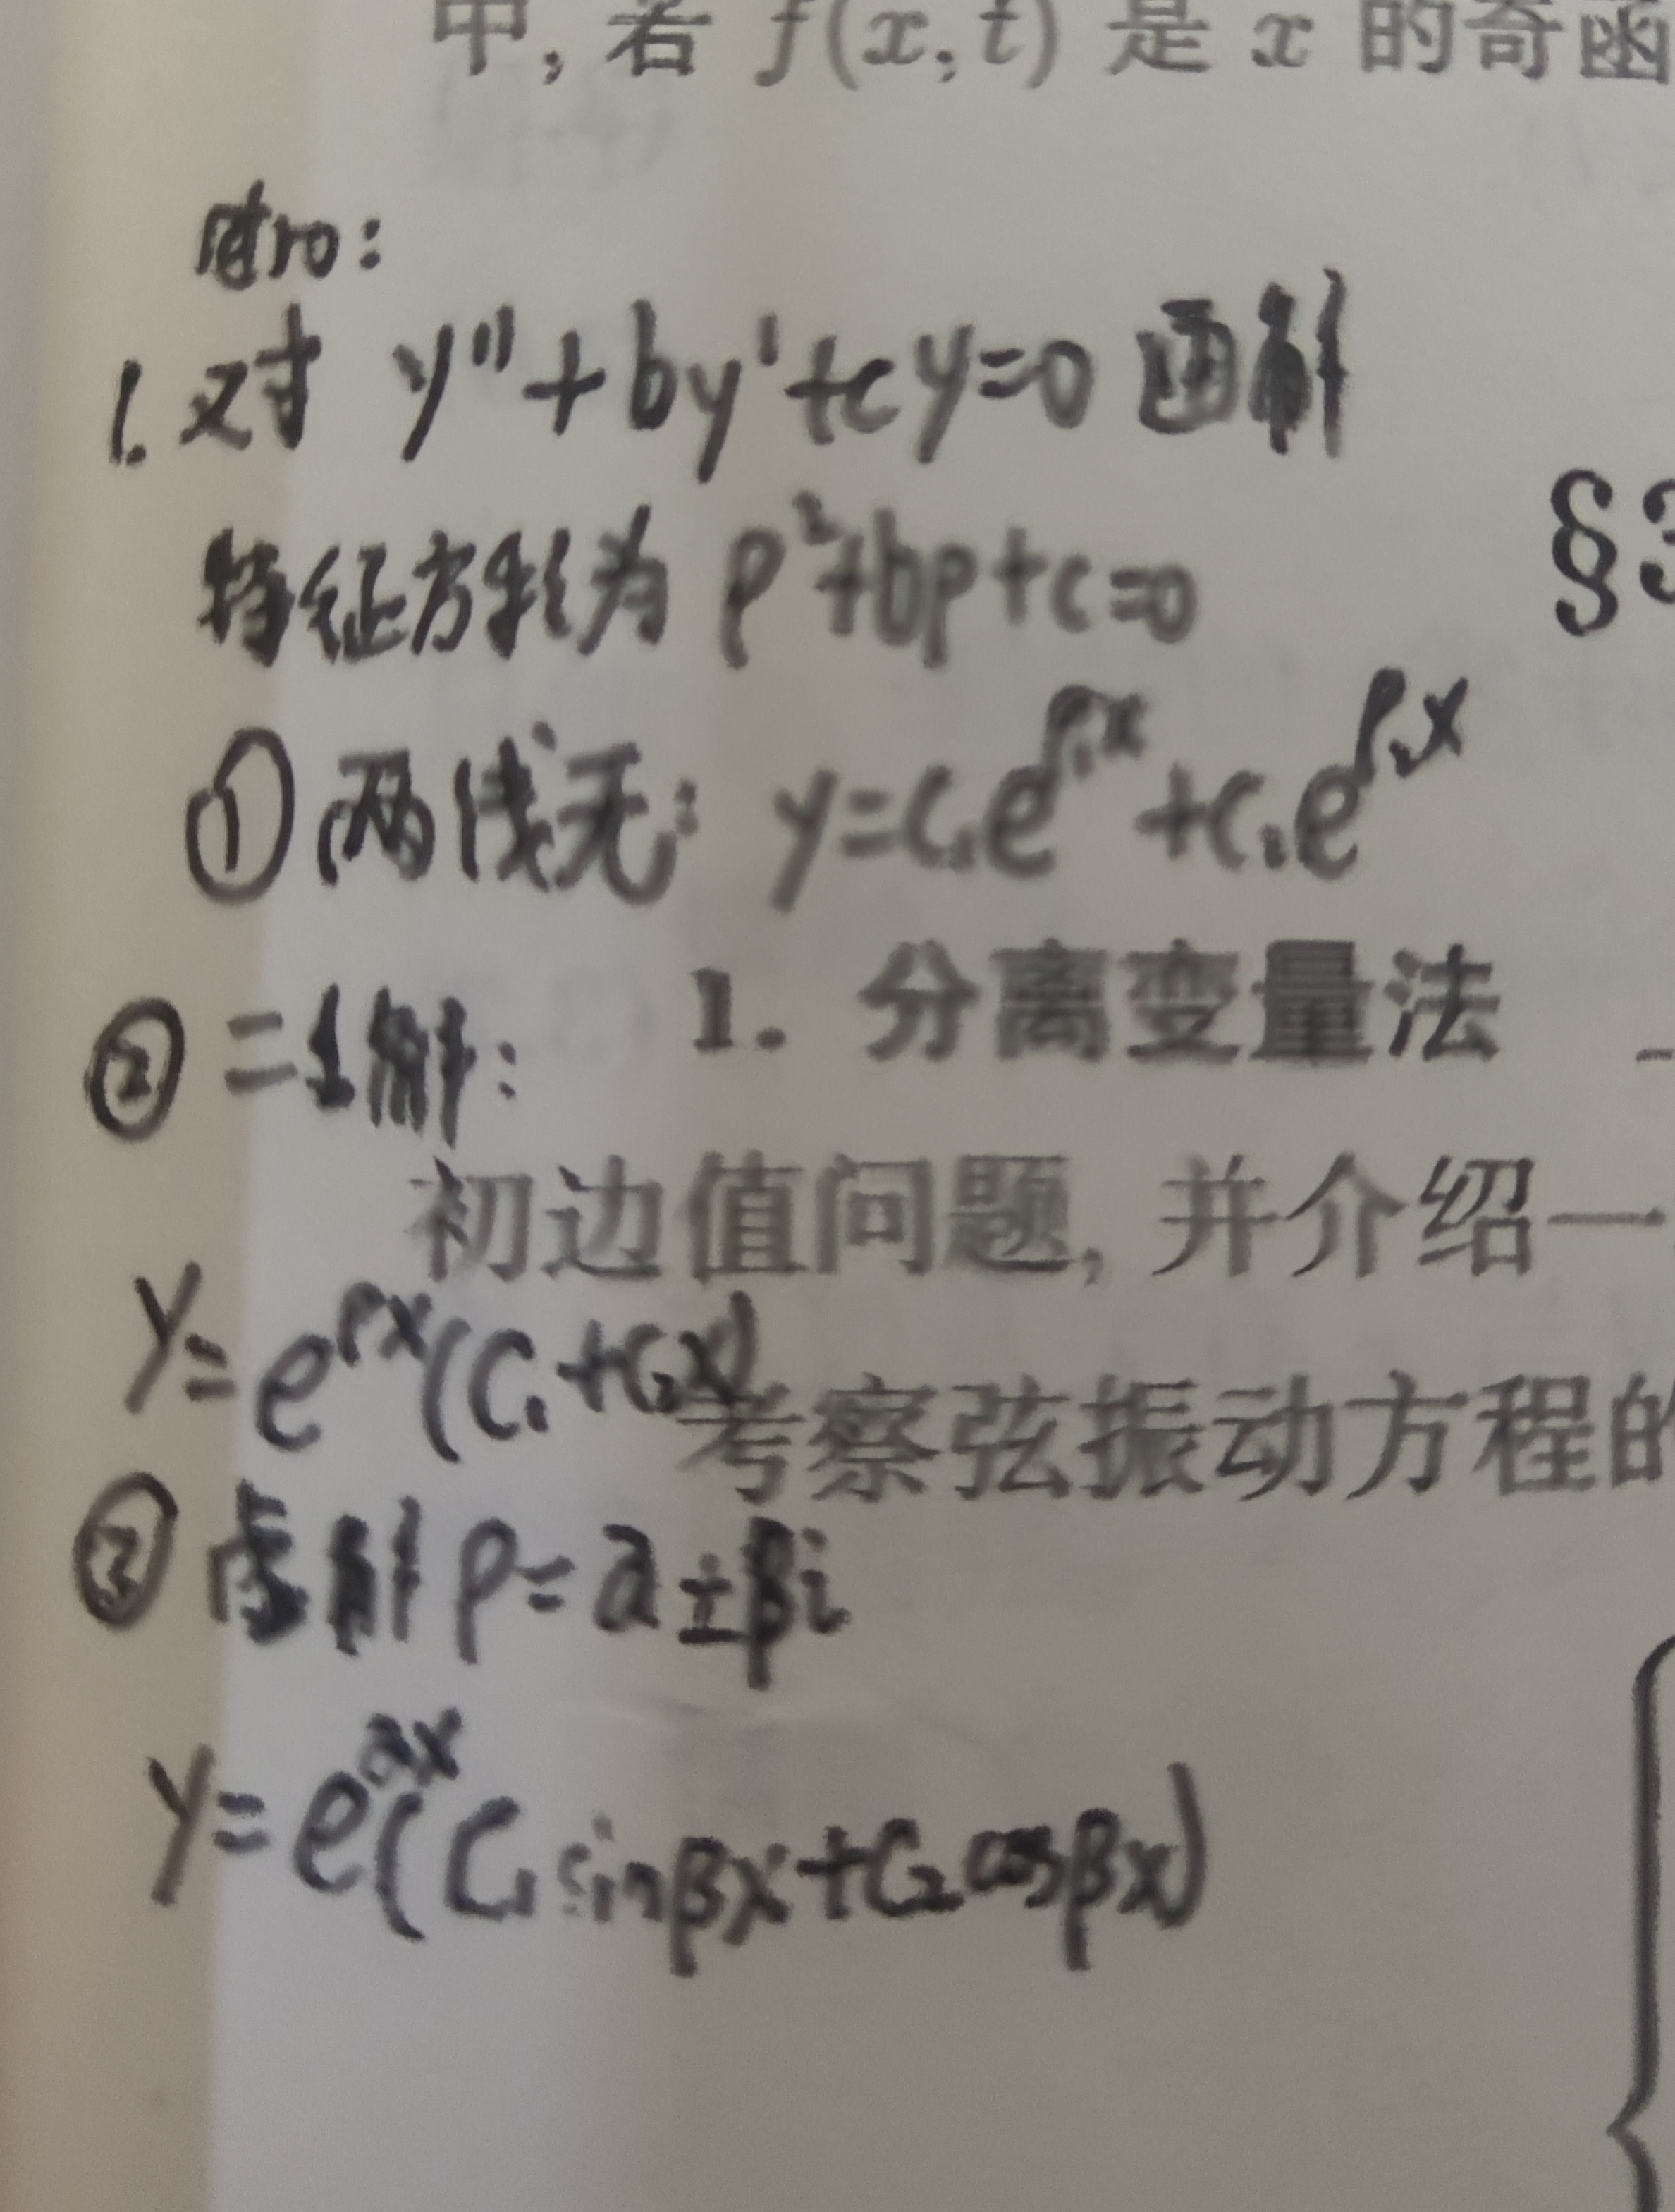 中, 若 f(x,t) 是 x 的奇函
1. 对 y''+by'+cy=0 通解
§3
特征方程为 p²+bp+c=0
① 两线无: y=C₁e^{p₁x}+C₂e^{p₂x}
1. 分离变量法
② 二1解:
初边值问题, 并介绍一
y=e^{px}(C₁+C₂x)
考察弦振动方程的
③ 虚解 p=a±βi
y=e^{ax}(C₁sinβx+C₂cosβx)